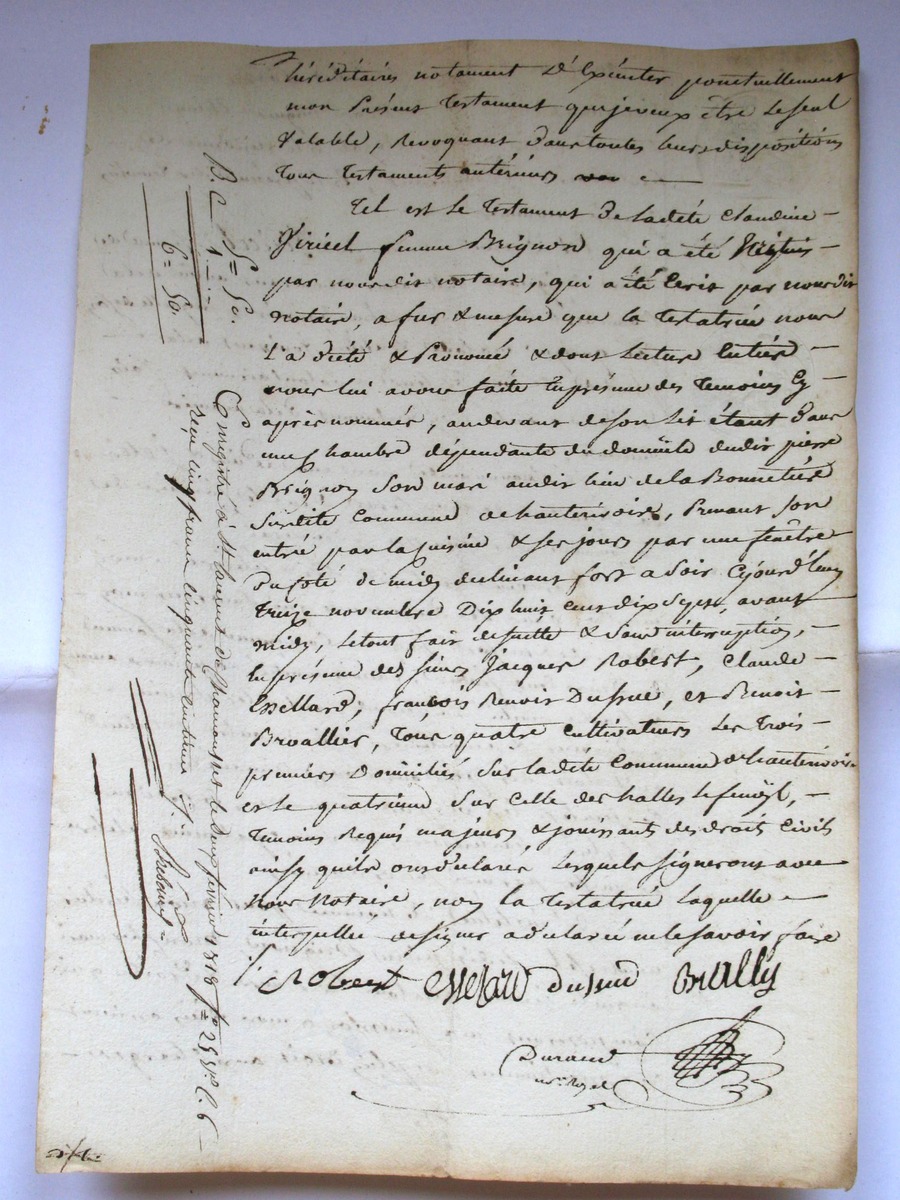 héréditaires notament D'Exécuter ponctuellement
mon Présent Testament que je veux être Le seul
Valable, Revoquant dans toutes leurs dispositions
Tous Testaments antérieurs
Tel est Le Testament de ladite Claudine
femme Brignon qui a été
par nousdit notaire, qui a été Ecrit par nousdit
notaire, a fur & mesure que la Testatrice nous
L'a dicté & Prononcé & dont Lecture Entière
nous lui avons faite En présence des Temoins Cy
après nommés, audevant de son Lit étant Dans
une Chambre dépendante du domicile dudit pierre
Brignon Son mari audit lieu de la Bonnetière
Susdite Commune de hauterivoire, Prenant Son
entrée par la Cuisine & ses jours par une fenêtre
Du Côté de midy declinant fort a Soir Cejourd'huy
Treize novembre Dix huit Cent dix Sept, avant
midy, Le tout fait de suitte & Sans interruption,
En présence des Sieurs Jacques Robert, Claude
Essellard, francois Benoit Dussud, et Benoit
Broallier, Tous quatre Cultivateurs Les Trois
premiers Domiciliés Sur ladite Commune d'hauterivoire
et Le quatrieme Sur Celle des halles Le fenoyl,
Temoins Requis majeurs & jouissants des droits Civils
ainsy quils ont déclaré Lesquels Signeront avec
Nous Notaire, non la Testatrice Laquelle
interpellée de signer a déclaré ne le savoir faire
Robert Esselard Dussud Brually
Durand
nre Royal
B. C 5= 50.
1=
6= 50.
Enregistré à St laurent de Chamousset le deux février 1818 fo 25 vo C. 6
Reçu Cinq francs Cinquante Centimes